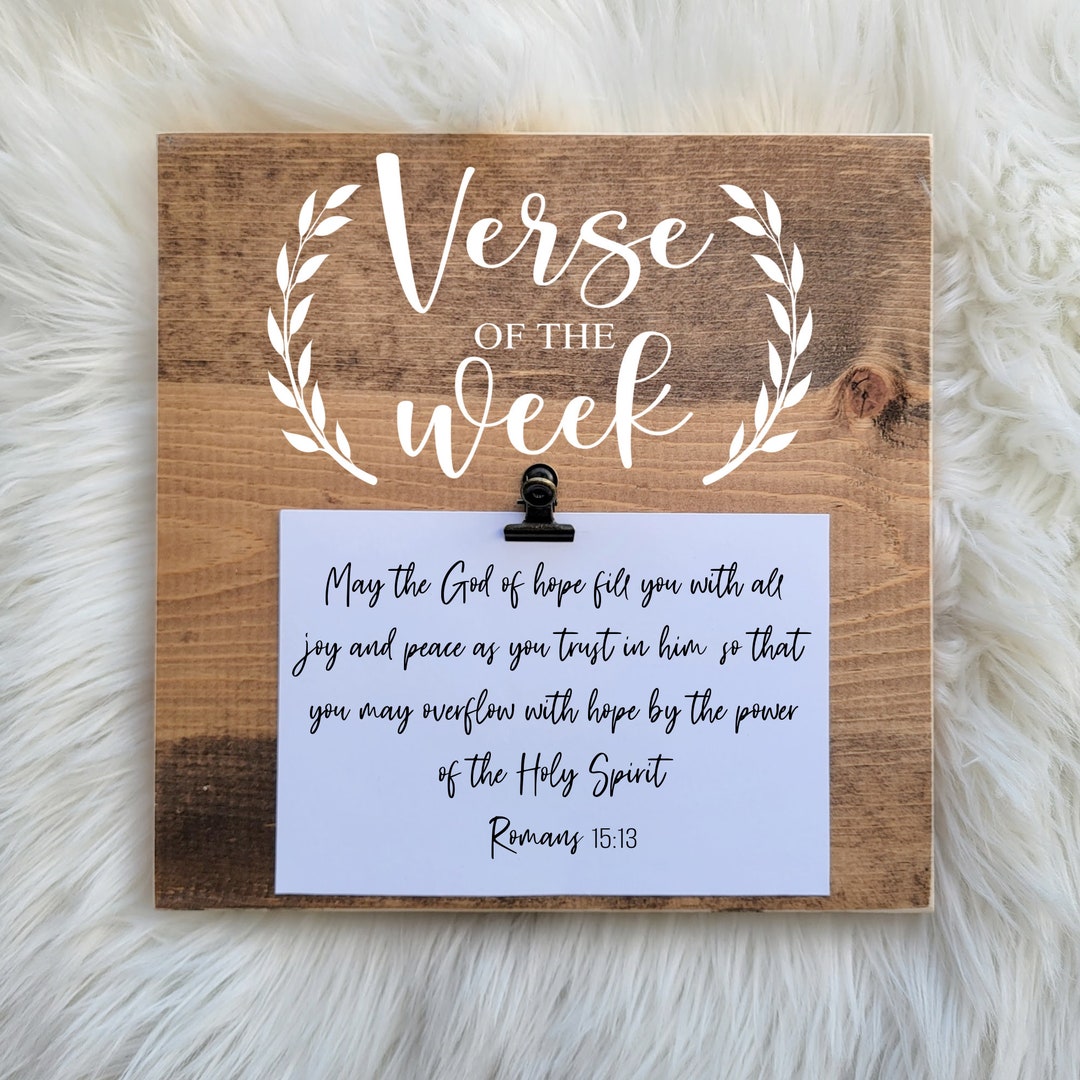 Verse
OF THE
week
May the God of hope fill you with all
joy and peace as you trust in him so that
you may overflow with hope by the power
of the Holy Spirit
Romans 15:13